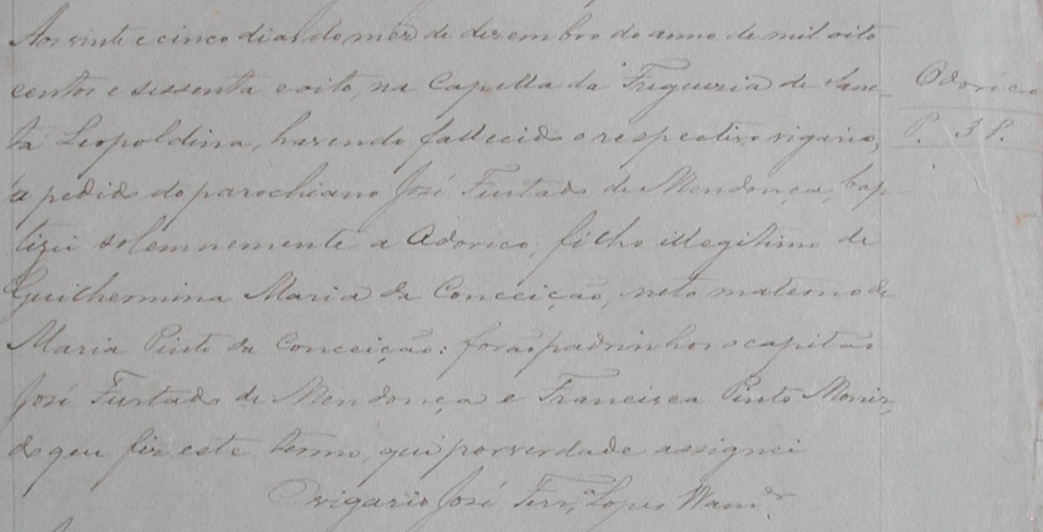 Aos vinte e cinco dias do mez de desembro do anno de mil oito
centos e sessenta e oito, na Capella da Freguezia de San-
ta Leopoldina, havendo fallecido o respectivo vigario,
a pedido do parochiano José Furtado de Mendonça, bap
tizei solemnemente a Odorico, filho illegitimo de
Guilhermina Maria da Conceição, neto materno de
Maria Pinto da Conceição: forão padrinhos o capitão
José Furtado de Mendonça e Francisca Pinto Moniz,
do que fiz este termo, que por verdade assignei
O vigario José Ferrª Lopes
Odorico
P. 3 P.